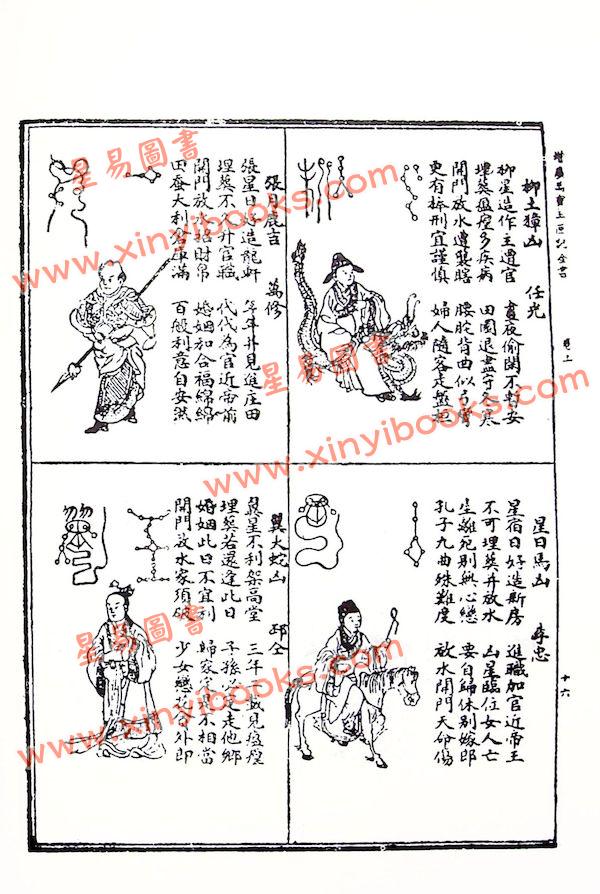 卷上
十六
柳土獐凶 任光
柳星造作主遭官 晝夜偷閉不暫安
埋葬瘟㾮多疾病 田園退盡守冬寒
開門放水遭聾瞎 腰駝背曲似弓彎
更有捧刑宜謹慎 婦人隨客走盤桓
張月鹿吉 萬修
張星日好造龍軒 年年并見進庄田
埋葬不久升官職 代代為官近帝前
開門放水招財帛 婚姻和合福綿綿
田蚕大利倉庫滿 百般利意自安然
星日馬凶 李忠
星宿日好造新房 進職加官近帝王
不可埋葬并放水 凶星臨位女人亡
生離死別無心戀 要自歸休別嫁郎
孔子九曲殊難度 放水開門天命傷
翼火蛇凶 邳仝
翼星不利架高堂 三年 載見瘟㾮
埋葬若還逢此日 子孫 走他鄉
婚姻此日不宜利 歸家 不相當
開門放水家須破 少女戀 外郎
星易圖書
www.xinyibooks.com
星易圖書
www.xinyibooks.com
星易圖書
www.xinyibooks.com
星易圖書
www.xinyibooks.com